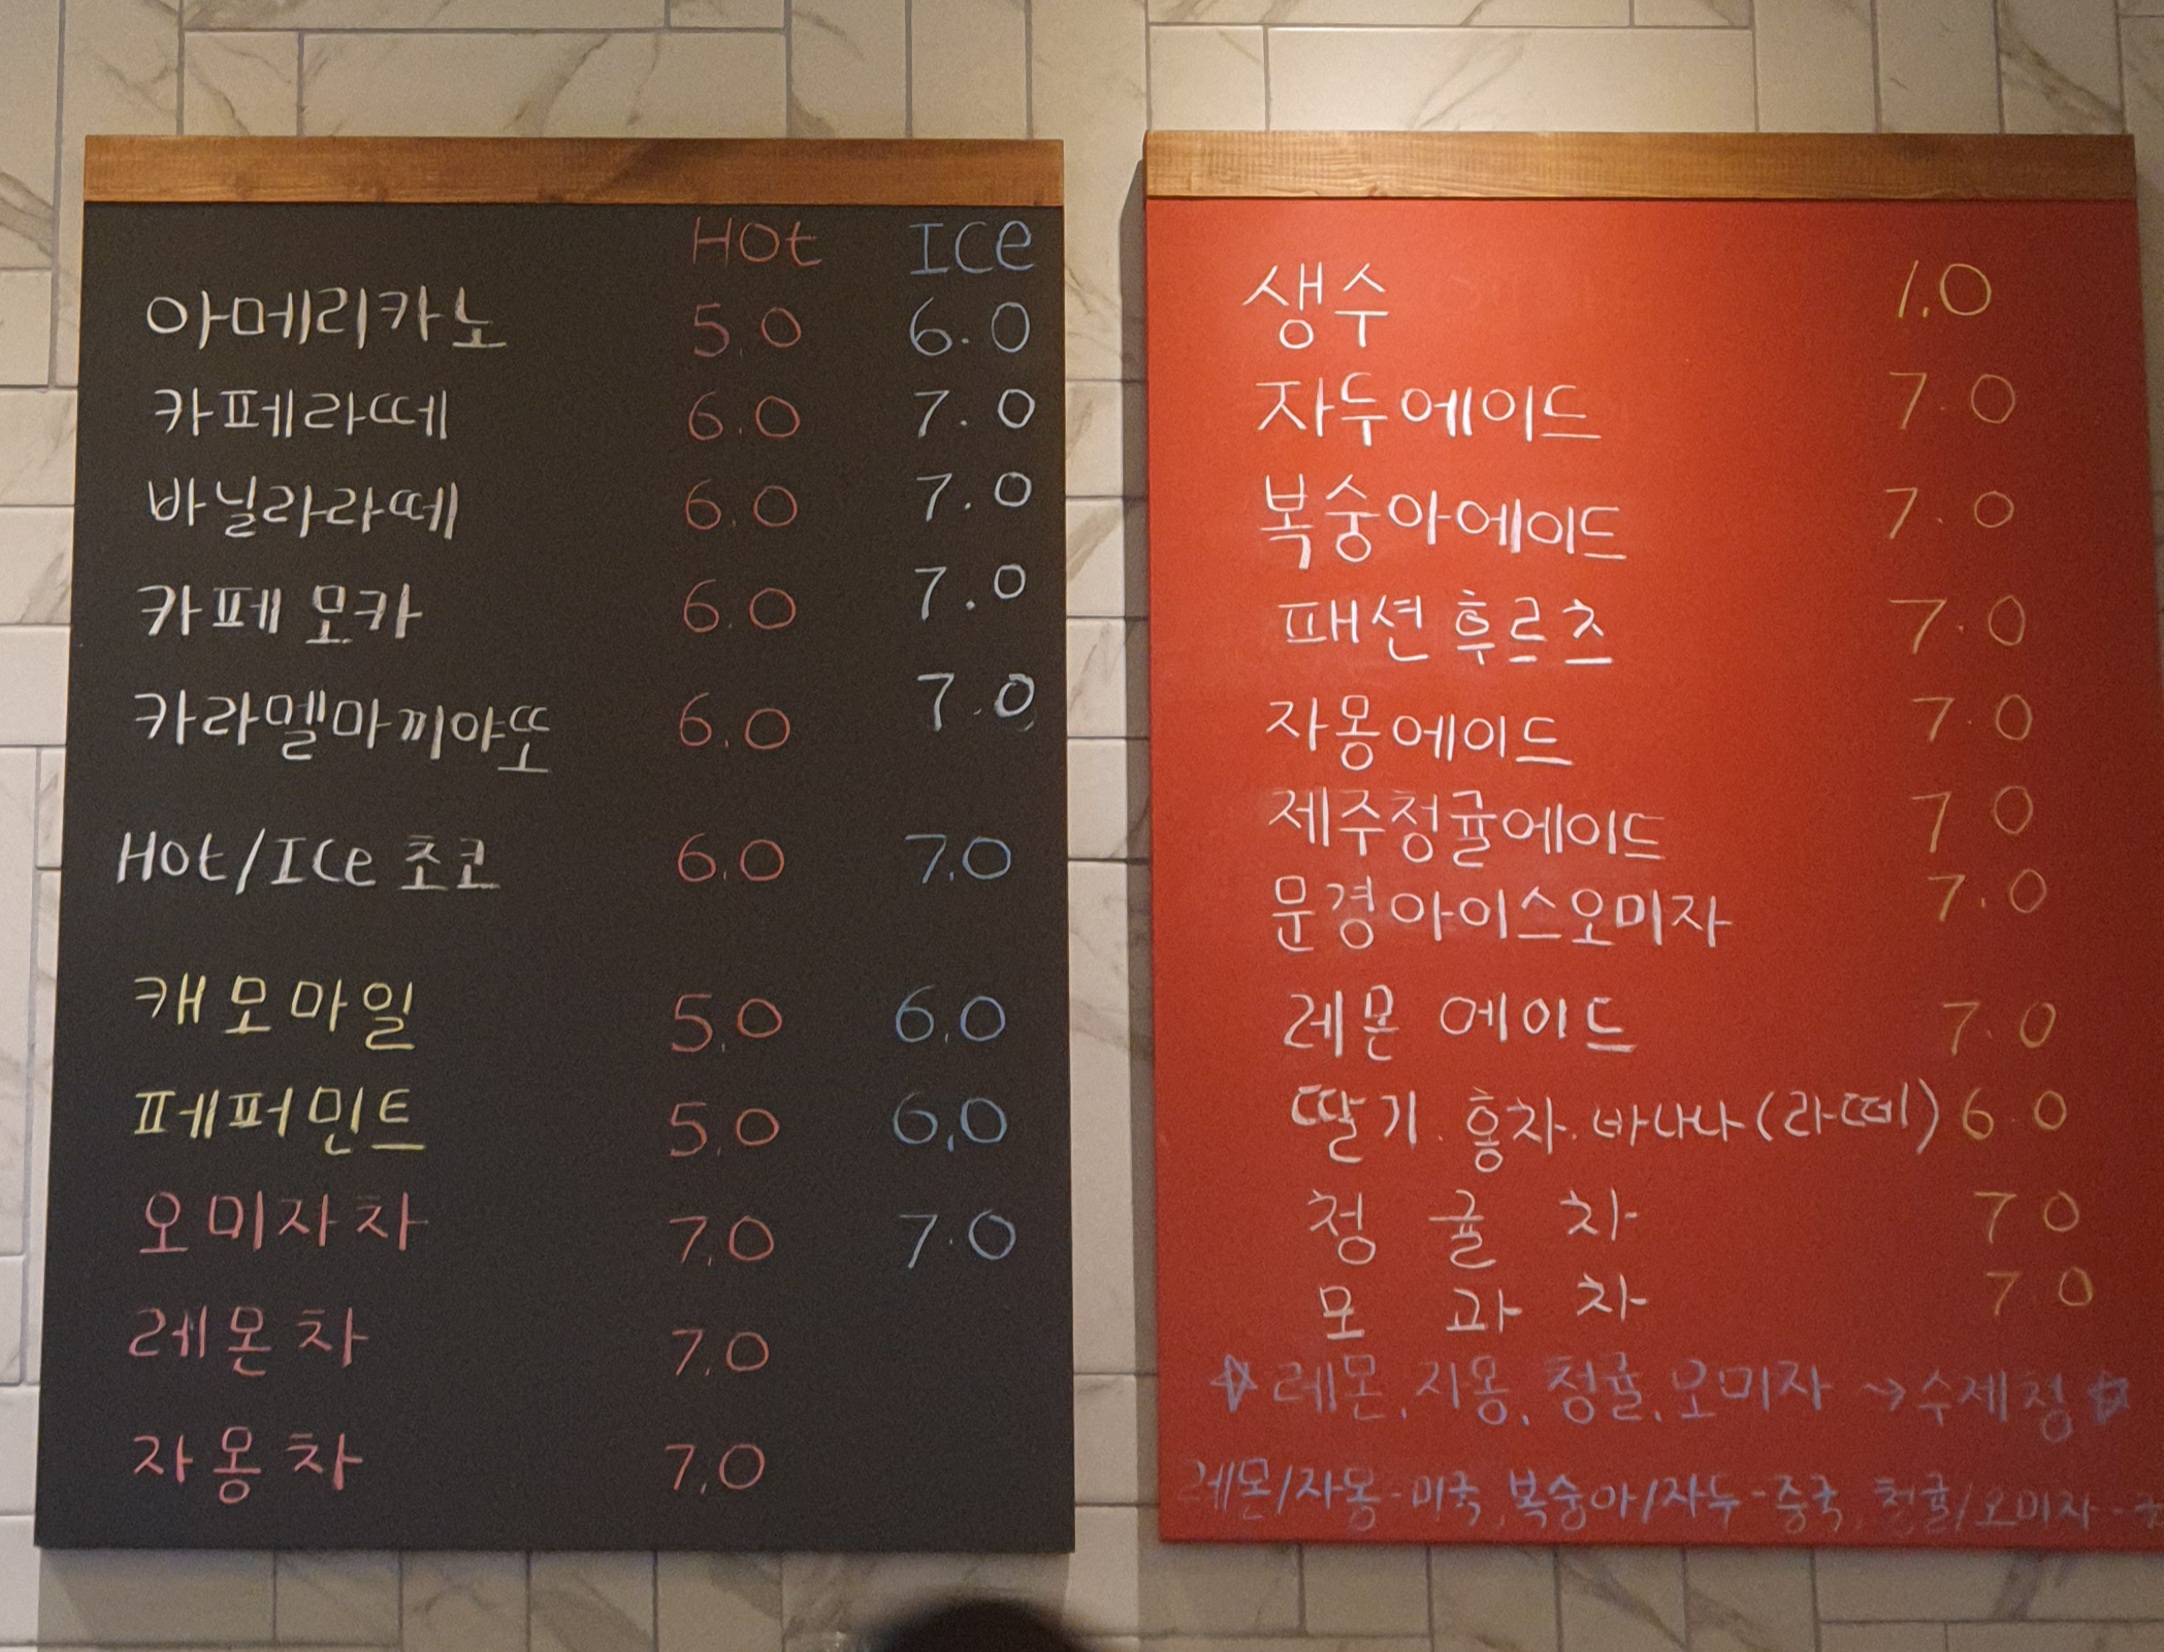 Hot Ice
아메리카노 5.0 6.0
카페라떼 6.0 7.0
바닐라라떼 6.0 7.0
카페 모카 6.0 7.0
카라멜마끼야또 6.0 7.0
Hot/Ice 초코 6.0 7.0
캐모마일 5.0 6.0
페퍼민트 5.0 6.0
오미자차 7.0 7.0
레몬차 7.0
자몽차 7.0
생수 1.0
자두에이드 7.0
복숭아에이드 7.0
패션후르츠 7.0
자몽에이드 7.0
제주청귤에이드 7 0
문경아이스오미자 7.0
레몬 에이드 7.0
딸기.홍차.바나나(라떼) 6.0
청 귤 차 7 0
모 과 차 7 0
☆레몬,자몽,청귤,오미자→수제청☆
레몬/자몽-미국,복숭아/자두-중국,청귤/오미자-